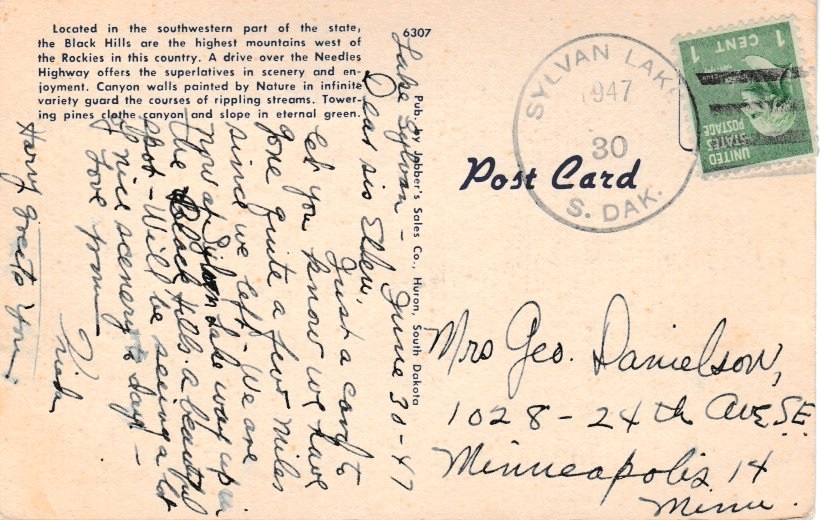 Located in the southwestern part of the state,
the Black Hills are the highest mountains west of
the Rockies in this country. A drive over the Needles
Highway offers the superlatives in scenery and en-
joyment. Canyon walls painted by Nature in infinite
variety guard the courses of rippling streams. Tower-
ing pines clothe canyon and slope in eternal green.
6307
Pub. by Jobber's Sales Co., Huron, South Dakota
Lake Sylvan - June 30-47
Dear sis Ellen,
Just a card to
let you know we have
gone quite a few miles
since we left - We are
now at Sylvan Lake way up in
the Black Hills a beautiful
spot - Will be seeing a lot
of nice scenery to day -
Love from
Harry Greets You
Post Card
SYLVAN LAKE
1947
30
S. DAK.
1 CENT 1
UNITED
STATES
POSTAGE
Mrs Geo. Danielson,
1028 - 24th Ave, S.E.
Minneapolis 14
Minn.